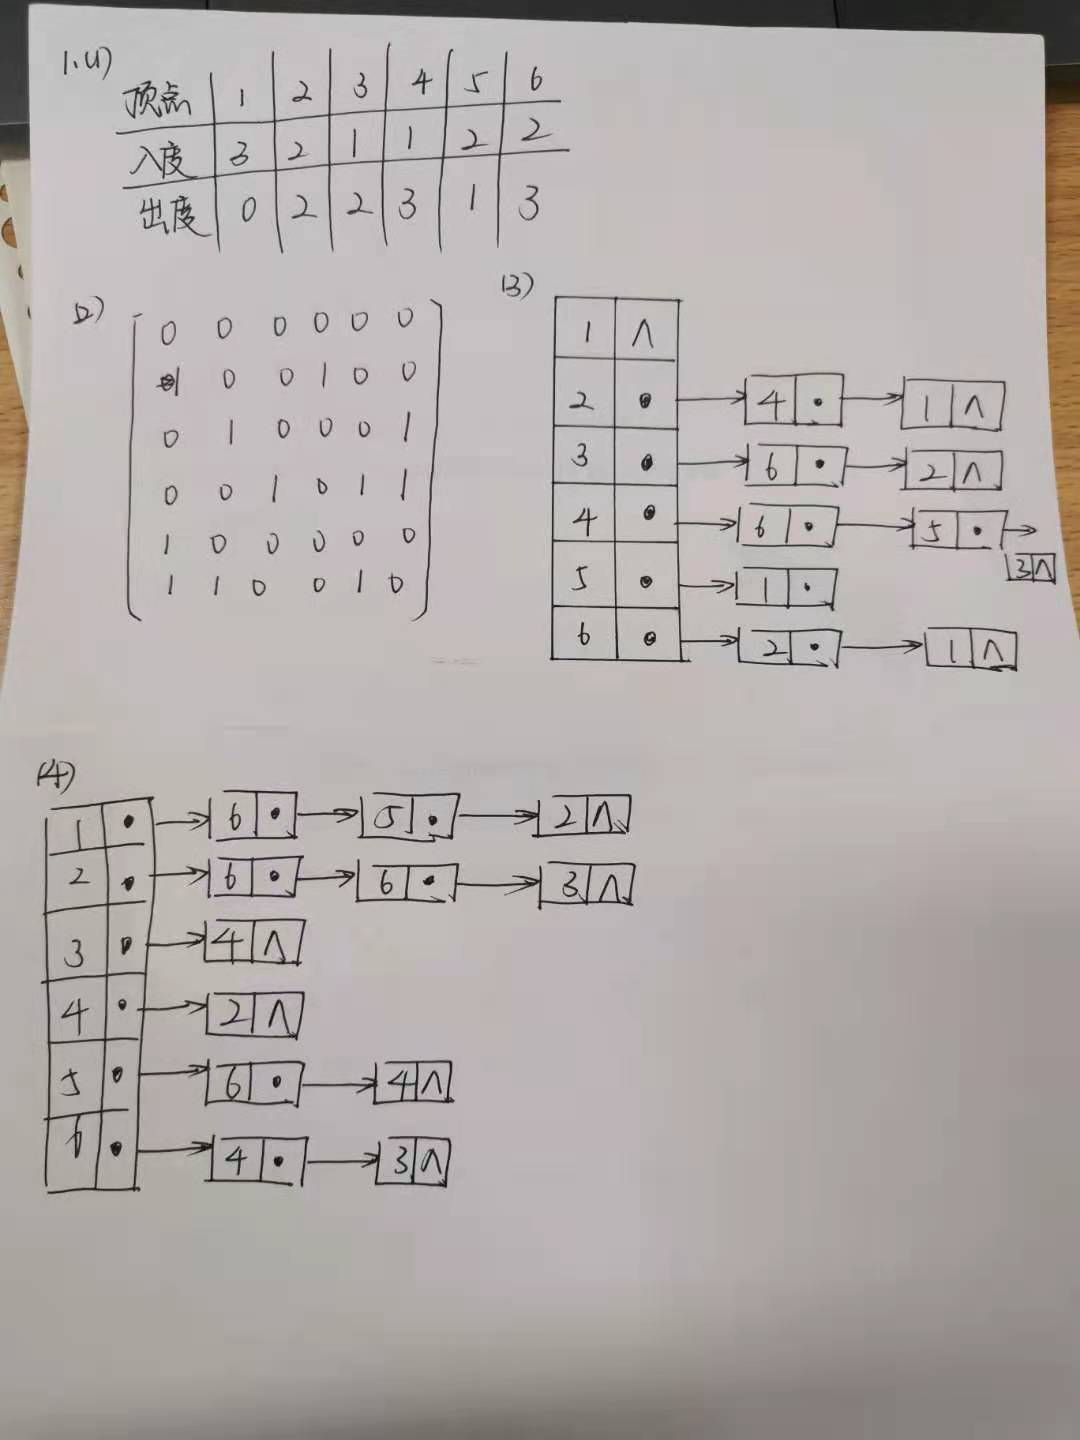 1.(1)
顶点 1 2 3 4 5 6
入度 3 2 1 1 2 2
出度 0 2 2 3 1 3
(2)
0 0 0 0 0 0
1 0 0 1 0 0
0 1 0 0 0 1
0 0 1 0 1 1
1 0 0 0 0 0
1 1 0 0 1 0
(3)
1 ∧
2 4 1 ∧
3 6 2 ∧
4 6 5
3 ∧
5 1
6 2 1 ∧
(4)
1 6 5 2 ∧
2 6 6 3 ∧
3 4 ∧
4 2 ∧
5 6 4 ∧
6 4 3 ∧